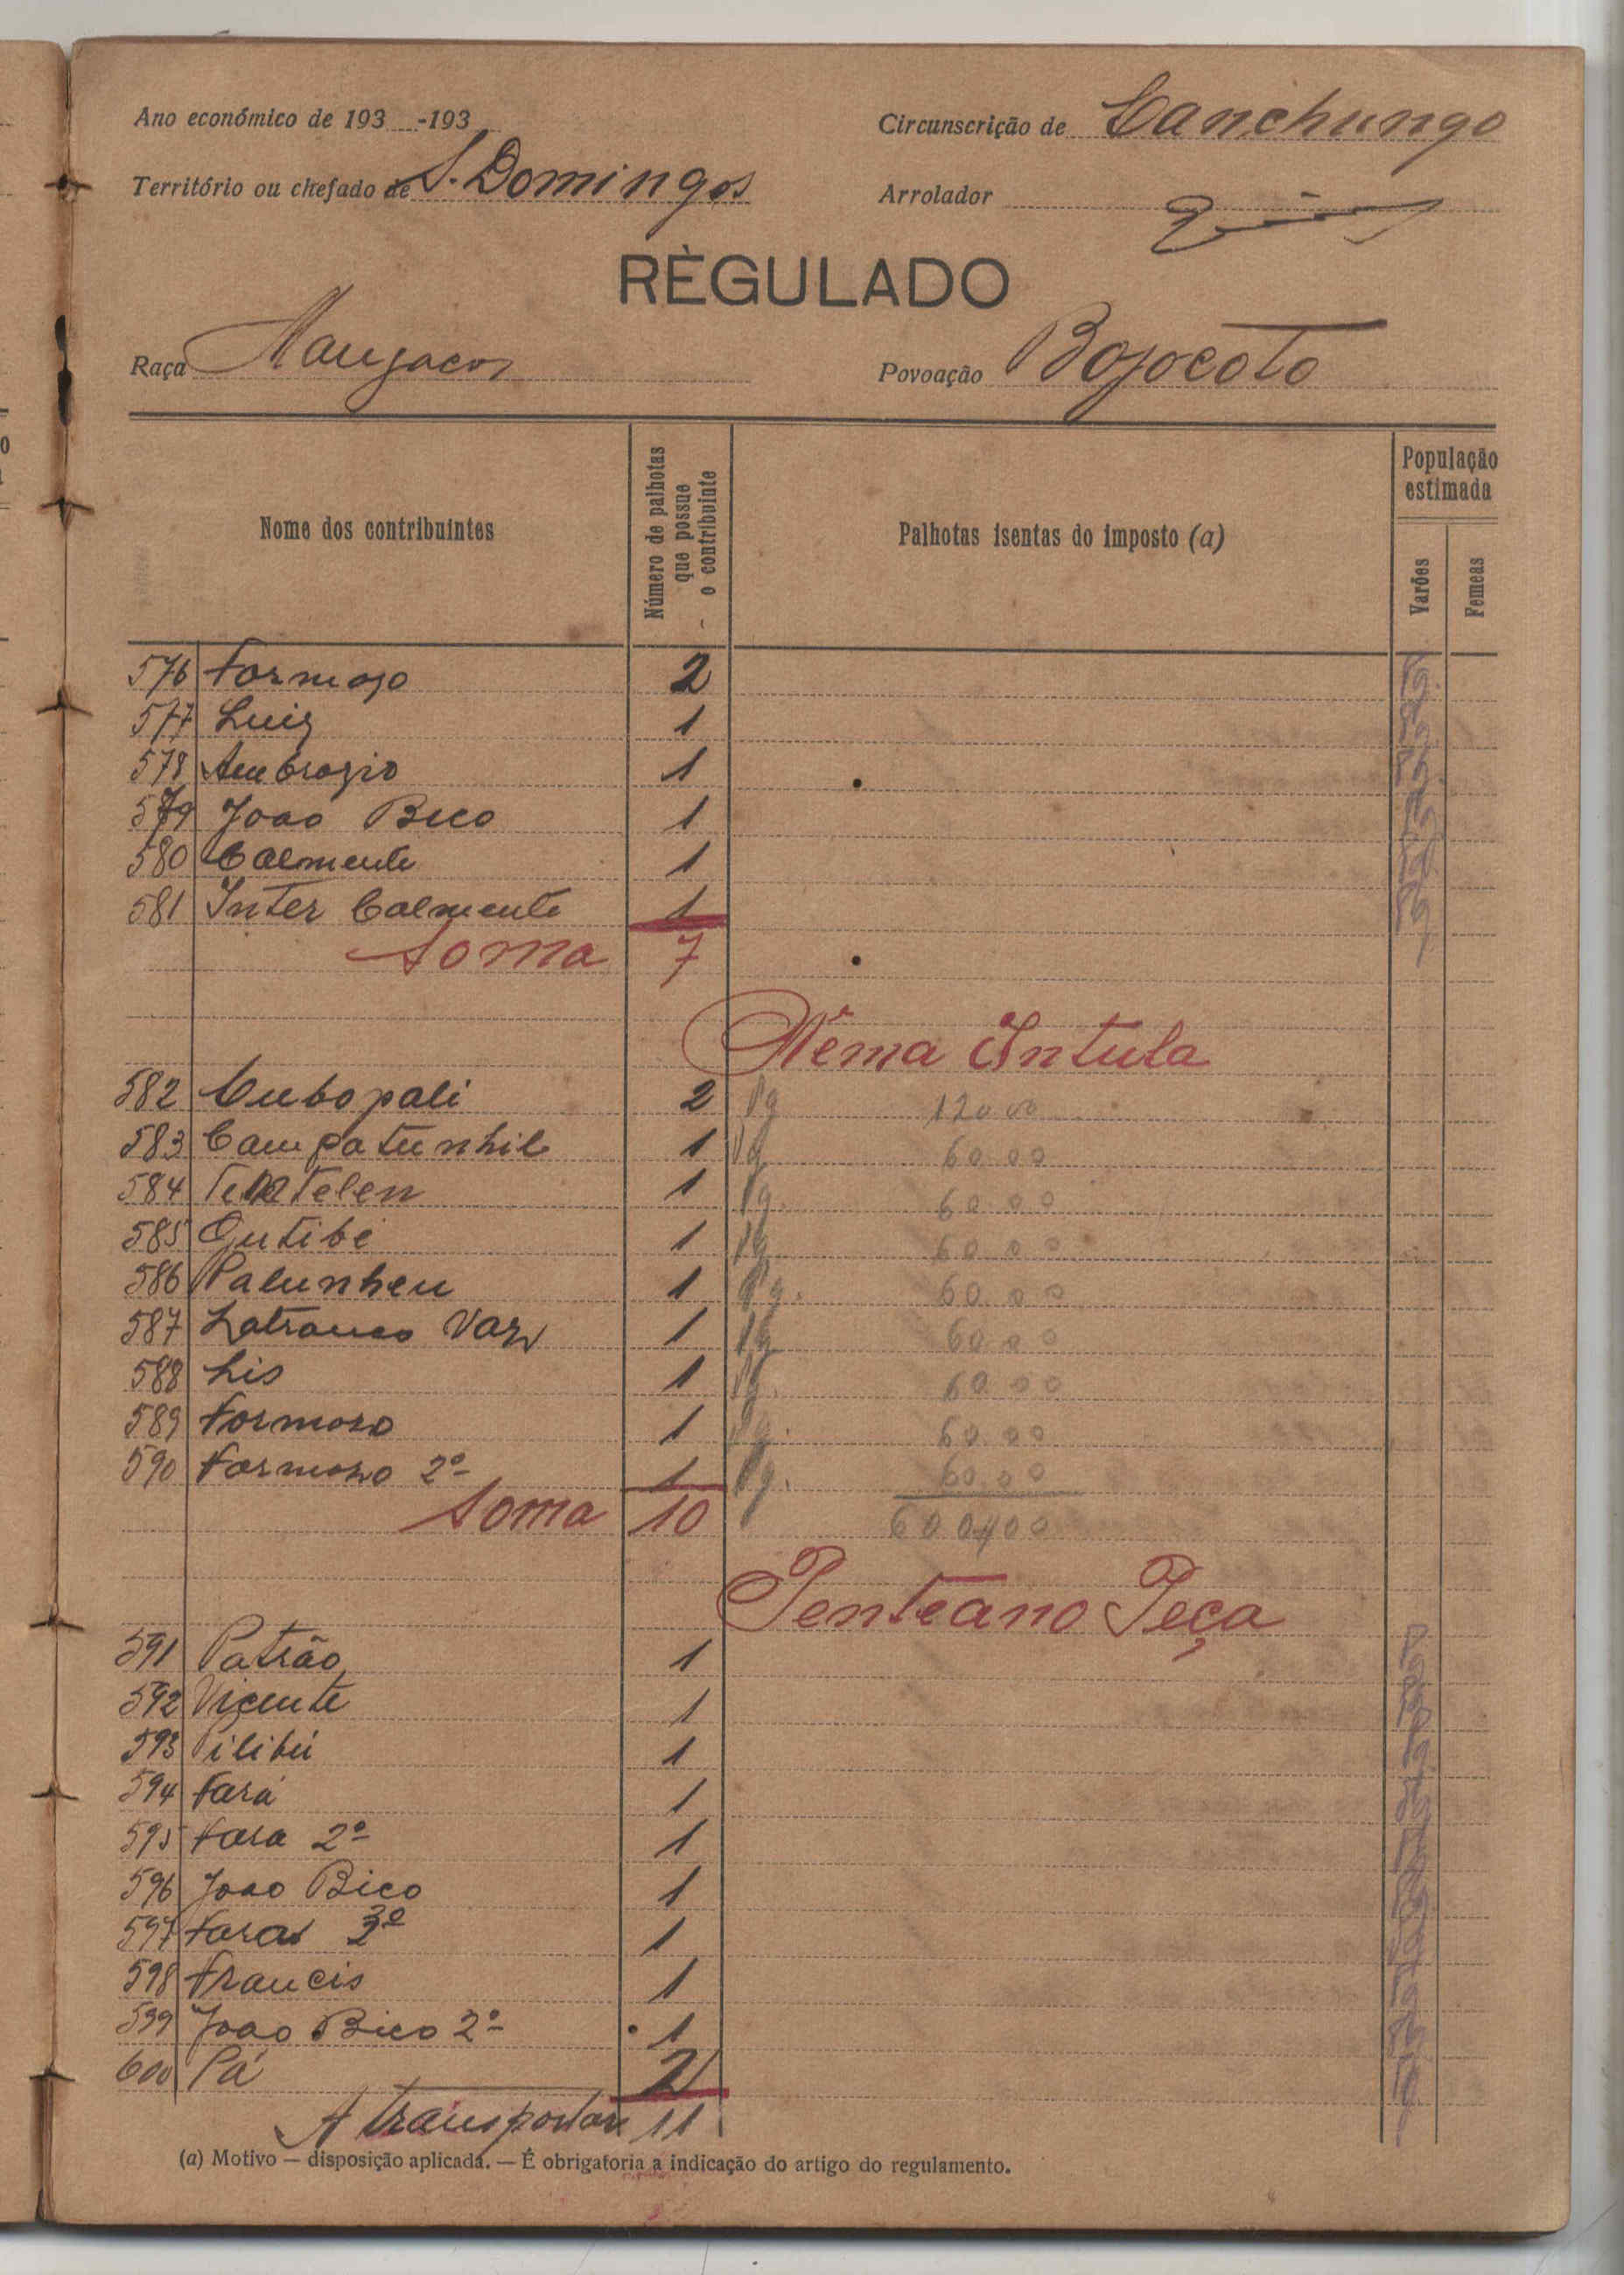 Ano económico de 193 -193
Circunscrição de Canchungo
Território ou chefado de S. Domingos
Arrolador
RÈGULADO
Raça Manjacos
Povoação Bojocoto
Nome dos contribuintes
Número de palhotas que possue o contribuinte
Palhotas isentas do imposto (a)
População estimada
Varões
Femeas
576 Formozo 2 Pg.
577 Luiz 1 Pg.
578 Ambrozio 1 Pg.
579 Joao Bico 1 Pg.
580 Calmente 1 Pg.
581 Inter Calmente 1 Pg.
Soma 7
Nema Intula
582 Cubopali 2 Pg 120.00
583 1 Pg 60.00
584 1 Pg. 60.00
585 Gutibe 1 Pg 60.00
586 Palunheu 1 Pg. 60.00
587 Latranco Vaz 1 Pg 60.00
588 Lis 1 Pg. 60.00
589 Formozo 1 Pg. 60.00
590 Formozo 2º 1 Pg. 60.00
Soma 10 600$00
Penteano Peça
591 Patrão 1 Pg
592 Vicente 1 Pg
593 1 Pg
594 Fará 1 Pg
595 Fara 2º 1 Pg
596 Joao Bico 1 Pg
597 Fara 3º 1 Pg
598 Francis 1 Pg
599 Joao Bico 2º 1 Pg
600 Pá 2 Pg
A transportar 11
(a) Motivo — disposição aplicada. — É obrigatoria a indicação do artigo do regulamento.